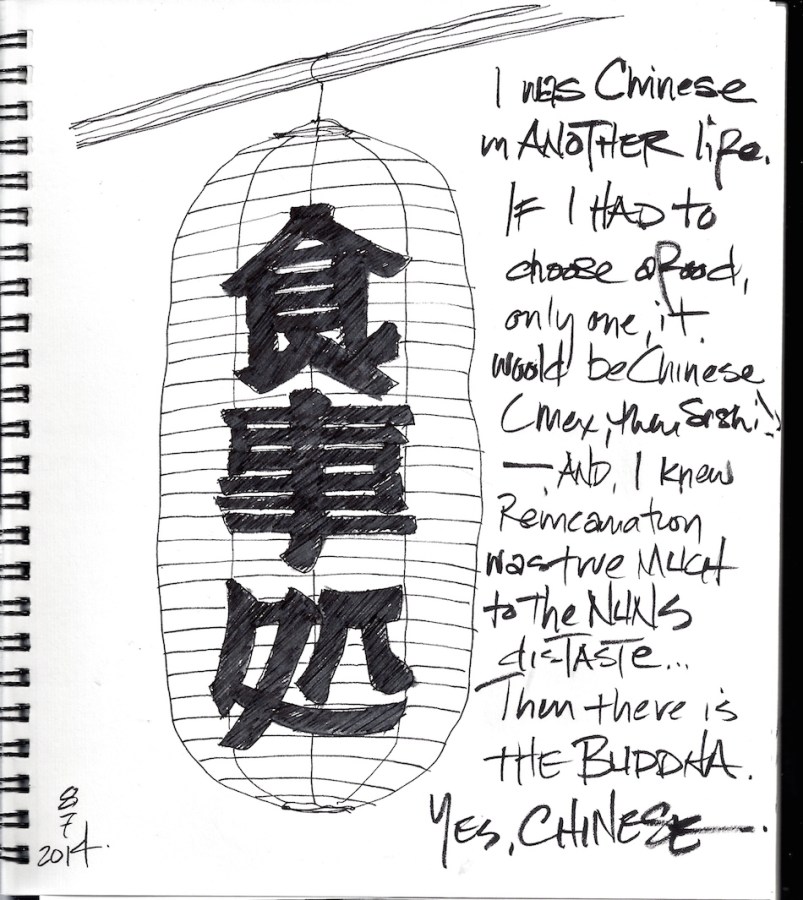 食事処
I was Chinese
in ANOTHER life.
IF I HAD to
choose a food,
only one, it
would be Chinese
(mex, then Sushi!)
— AND, I knew
Reincarnation
was true MUCH
to The NUNS
disTASTe...
Then there is
THE BUDDHA.
Yes, CHINESE—.
8
7
2014.